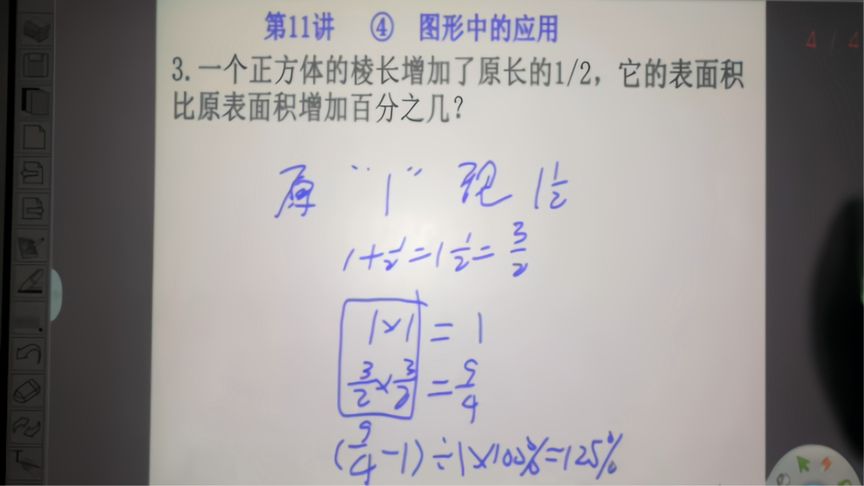 第11讲 ④ 图形中的应用
4/4
3.一个正方体的棱长增加了原长的1/2，它的表面积
比原表面积增加百分之几？
原 “1” 现 1 1/2
1+1/2=1 1/2=3/2
1×1=1
3/2×3/2=9/4
(9/4-1)÷1×100%=125%